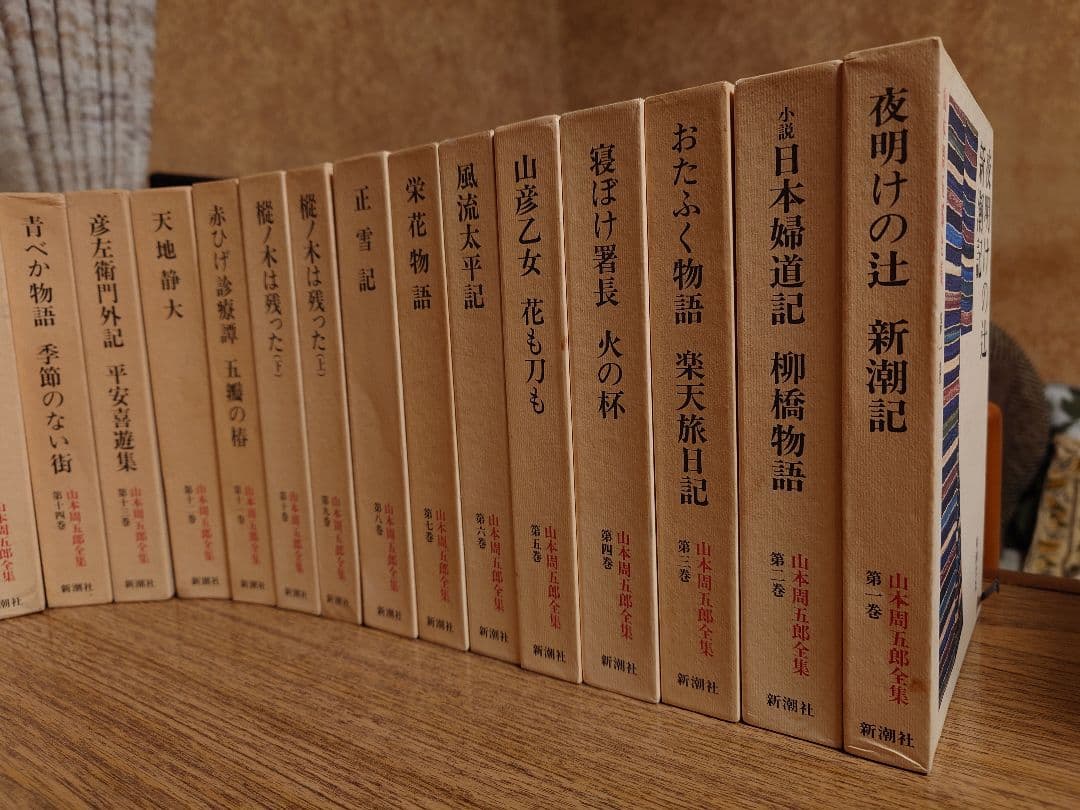 夜明けの辻 新潮記
山本周五郎全集
第一巻
新潮社
夜明けの辻
新潮記
小説 日本婦道記 柳橋物語
山本周五郎全集
第二巻
新潮社
おたふく物語 楽天旅日記
山本周五郎全集
第三巻
新潮社
寝ぼけ署長 火の杯
山本周五郎全集
第四巻
新潮社
山彦乙女 花も刀も
山本周五郎全集
第五巻
新潮社
風流太平記
山本周五郎全集
第六巻
新潮社
栄花物語
山本周五郎全集
第七巻
新潮社
正雪記
山本周五郎全集
第八巻
新潮社
樅ノ木は残った(上)
山本周五郎全集
第九巻
新潮社
樅ノ木は残った(下)
山本周五郎全集
第十巻
新潮社
赤ひげ診療譚 五瓣の椿
山本周五郎全集
第十一巻
新潮社
天地静大
山本周五郎全集
第十二巻
新潮社
彦左衛門外記 平安喜遊集
山本周五郎全集
第十三巻
新潮社
青べか物語 季節のない街
山本周五郎全集
第十四巻
新潮社
山本周五郎全集
新潮社